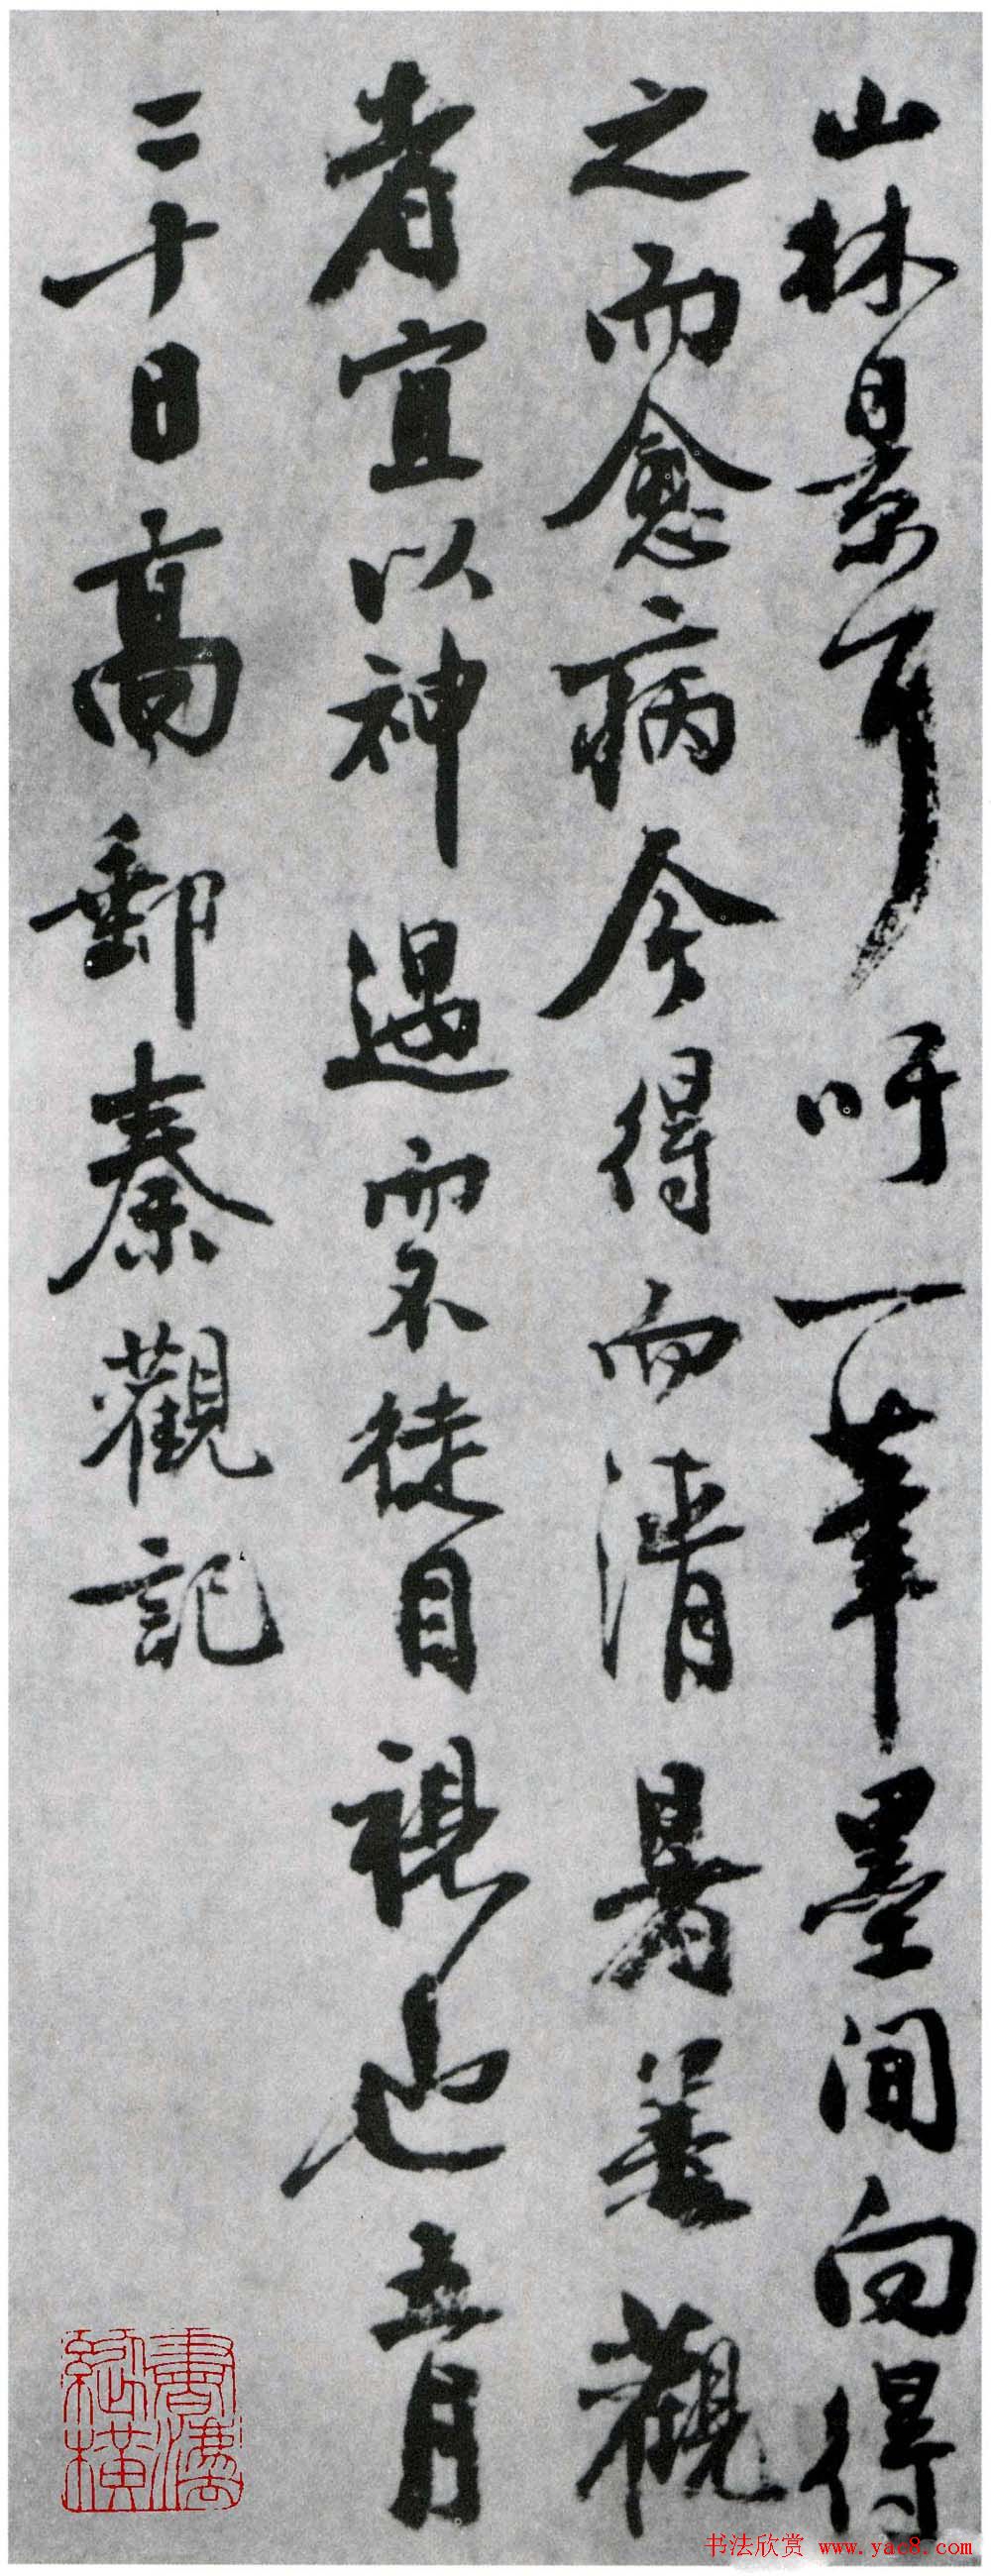 山林景耳吁一筆墨間向得
之而愈病今得而清暑善觀
者宜以神遇而不徒目視也五月
二十日高郵秦觀記
書灋
縱橫
书法欣赏 www.yac8.com